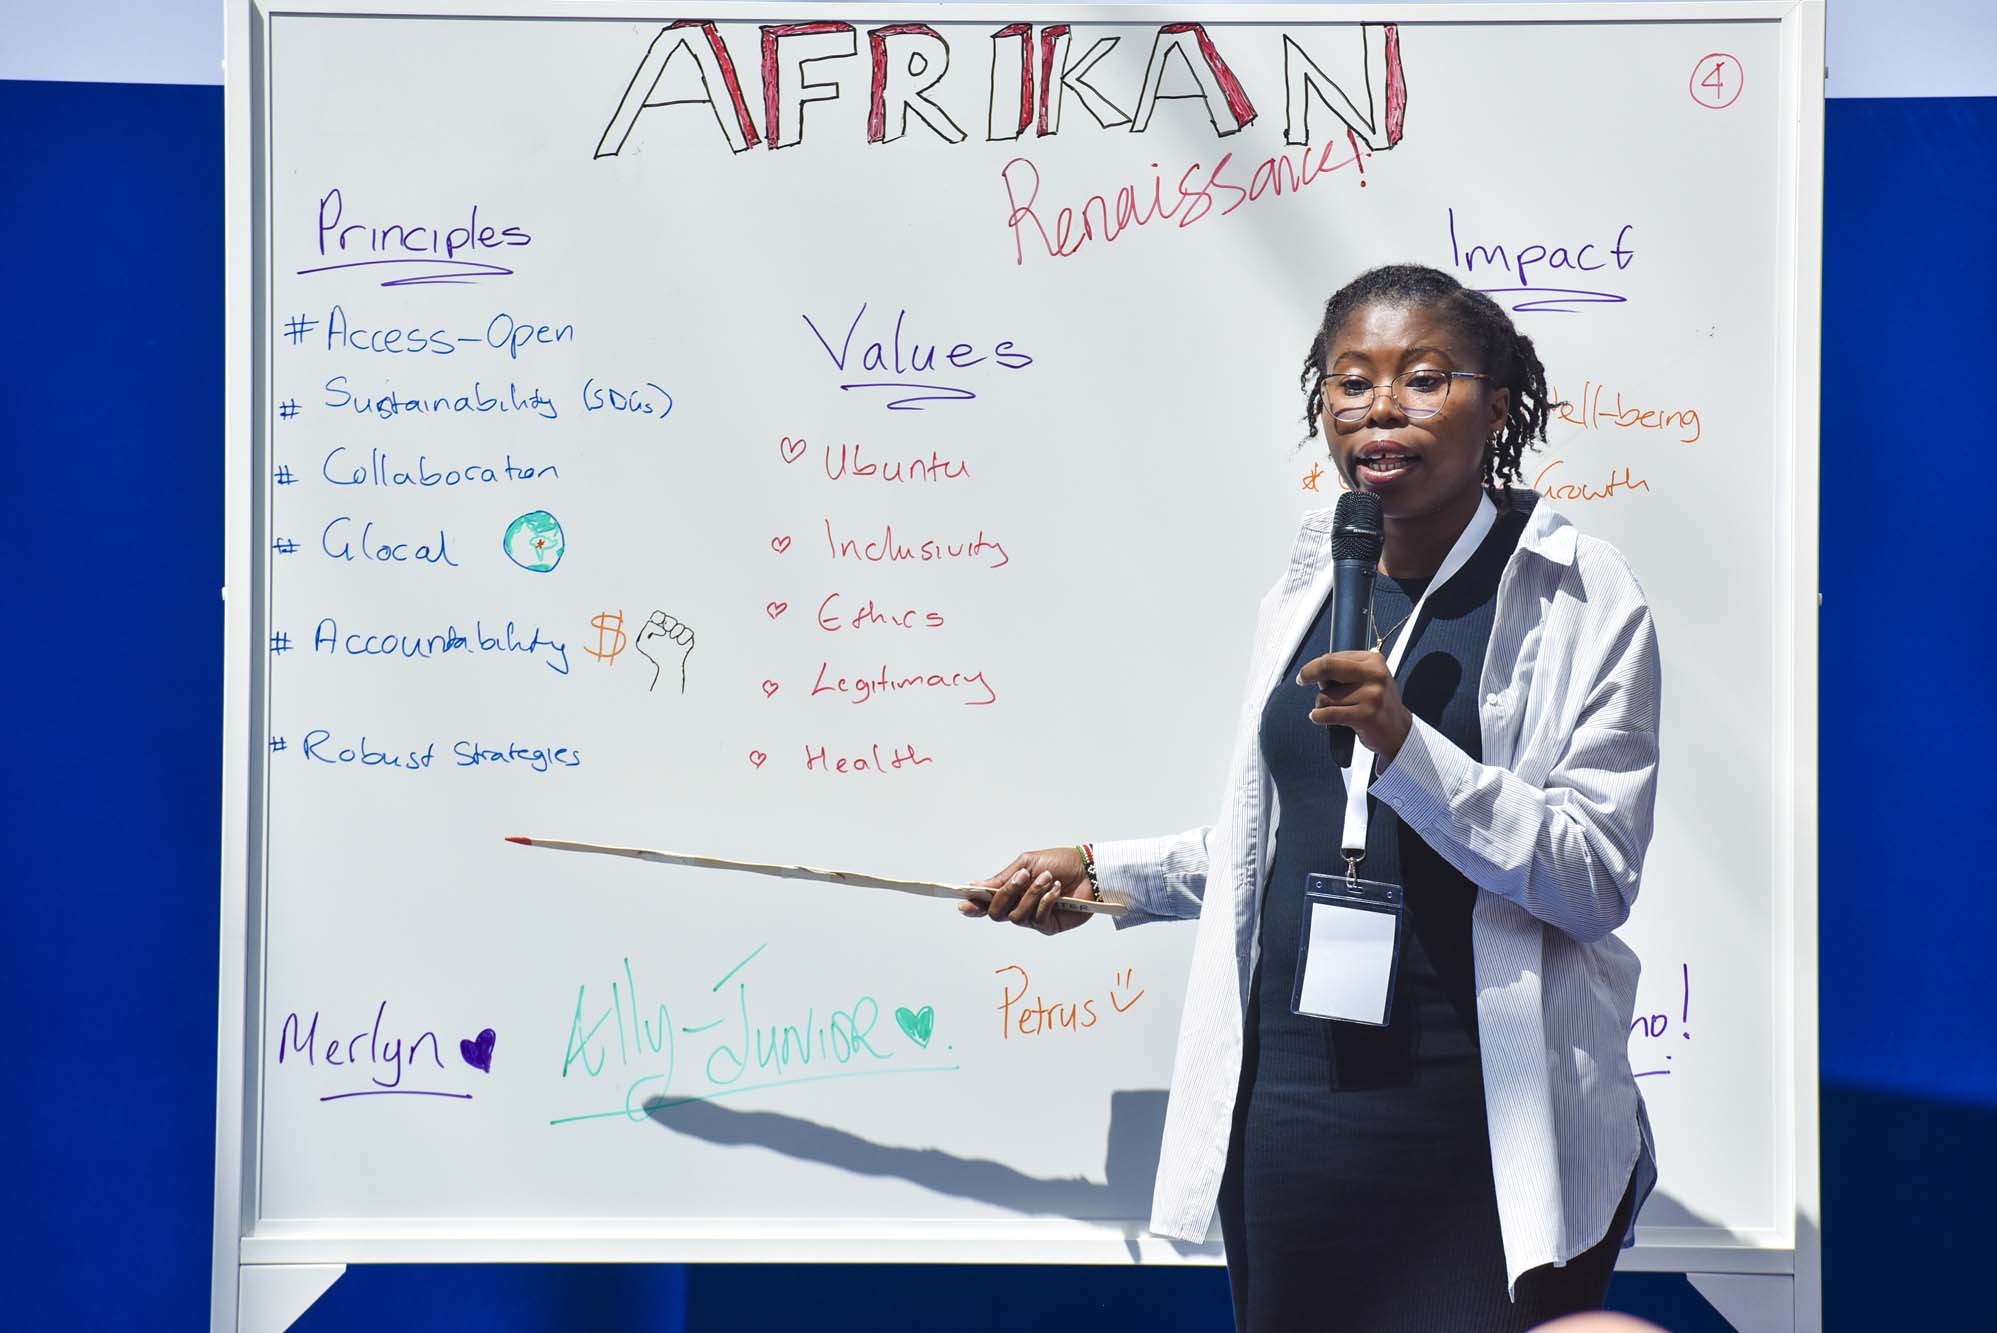 AFRIKAN
Renaissance!
4
Principles
# Access-Open
# Sustainability (SDGs)
# Collaboration
# Glocal
# Accountability $
# Robust Strategies
Values
♡ Ubuntu
♡ Inclusivity
♡ Ethics
♡ Legitimacy
♡ Health
Impact
ell-being
* Growth
Merlyn
Ally-Junior
Petrus
no!